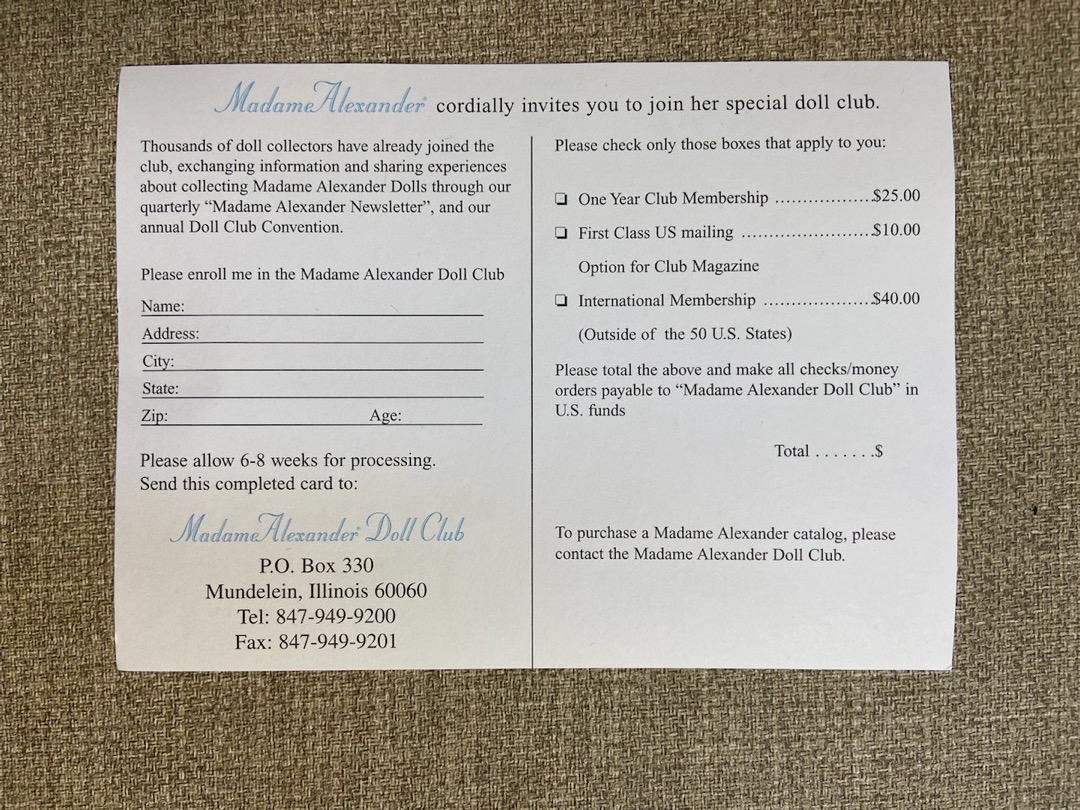 Madame Alexander® cordially invites you to join her special doll club.
Thousands of doll collectors have already joined the
club, exchanging information and sharing experiences
about collecting Madame Alexander Dolls through our
quarterly “Madame Alexander Newsletter”, and our
annual Doll Club Convention.
Please enroll me in the Madame Alexander Doll Club
Name:
Address:
City:
State:
Zip: Age:
Please allow 6-8 weeks for processing.
Send this completed card to:
Madame Alexander® Doll Club
P.O. Box 330
Mundelein, Illinois 60060
Tel: 847-949-9200
Fax: 847-949-9201
Please check only those boxes that apply to you:
❏ One Year Club Membership .................$25.00
❏ First Class US mailing .......................$10.00
Option for Club Magazine
❏ International Membership ...................$40.00
(Outside of the 50 U.S. States)
Please total the above and make all checks/money
orders payable to “Madame Alexander Doll Club” in
U.S. funds
Total . . . . . . .$
To purchase a Madame Alexander catalog, please
contact the Madame Alexander Doll Club.